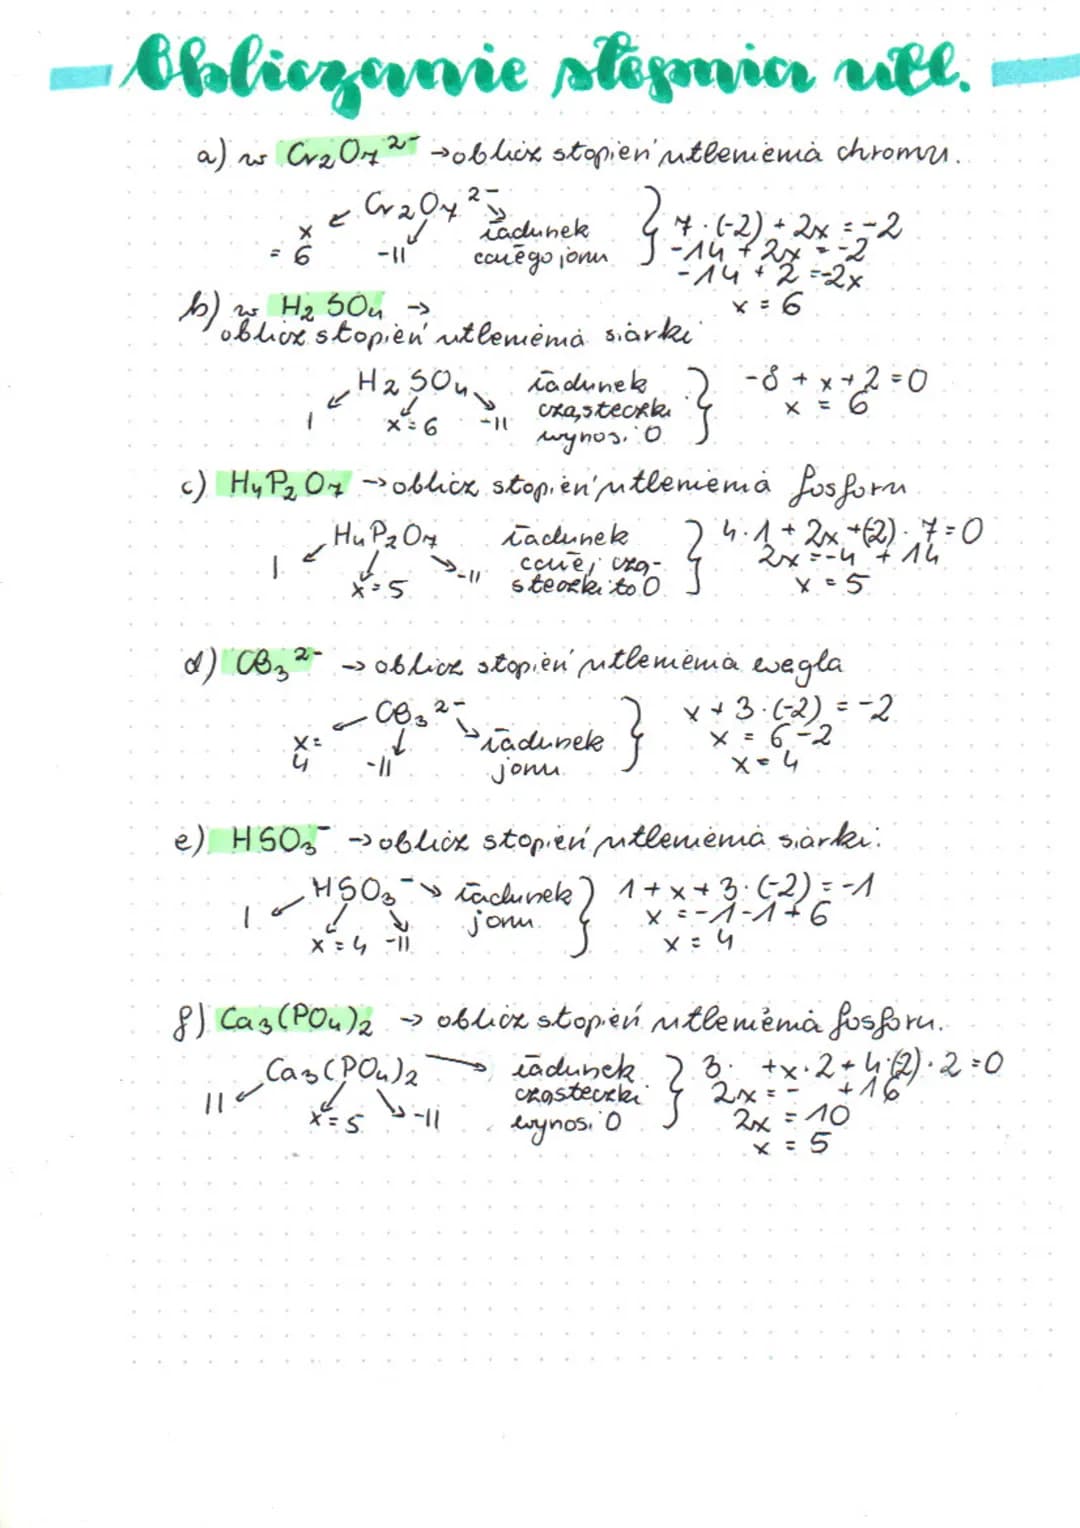 Obliczanie stopnia utl.
a) w Cr₂O₇²⁻ → oblicz stopień utlenienia chromu.
Cr₂O₇²⁻
x = 6
-II
ładunek
całego jonu
7·(-2) + 2x = -2
-14 + 2x = -2
-14 + 2 = -2x
x = 6
b) w H₂SO₄ →
oblicz stopień utlenienia siarki
H₂SO₄
I
x = 6
-II
ładunek
cząsteczki
wynosi 0
-8 + x + 2 = 0
x = 6
c) H₄P₂O₇ → oblicz stopień utlenienia fosforu
H₄P₂O₇
I
x = 5
-II
ładunek
całej czą-
steczki to 0
4·1 + 2x + (2)·7 = 0
2x = -4 + 14
x = 5
d) CO₃²⁻ → oblicz stopień utlenienia węgla
CO₃²⁻
x = 4
-II
ładunek
jonu
x + 3·(-2) = -2
x = 6 - 2
x = 4
e) HSO₃⁻ → oblicz stopień utlenienia siarki:
HSO₃⁻
I
x = 4
-II
ładunek
jonu
1 + x + 3·(-2) = -1
x = -1 - 1 + 6
x = 4
f) Ca₃(PO₄)₂ → oblicz stopień utlenienia fosforu.
Ca₃(PO₄)₂
II
x = 5
-II
ładunek
cząsteczki
wynosi 0
3· + x·2 + 4·(2)·2 = 0
2x = - + 16
2x = 10
x = 5